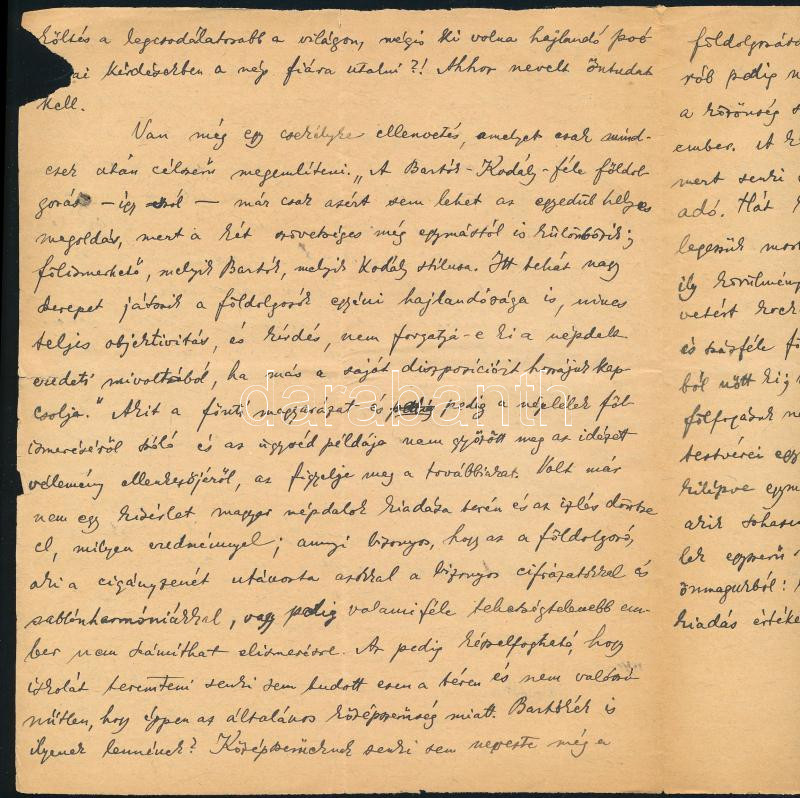 költés a legcsodálatosabb a világon, mégis ki volna hajlandó poé-
ai kérdésekben a nép fiára utalni?! Ahhoz nevelt öntudat
kell.
Van még egy csekélyke ellenvetés, amelyet csak mind-
ezek után célszerű megemlíteni. „A Bartók-Kodály-féle földol-
gozás — így szól — már csak azért sem lehet az egyedül helyes
megoldás, mert a két szövetséges még egymástól is különbözik;
fölismerhető, melyik Bartók, melyik Kodály stílusa. Itt tehát nagy
szerepet játszik a földolgozók egyéni hajlandósága is, nincs
teljes objektivitás, és kérdés, nem forgatja-e ki a népdalt
eredeti mivoltából, ha más a saját diszpozícióit hozzájuk kap-
csolja." Akit a fönti magyarázat és pedig a néplélek föl-
ismeréséről szóló és az ügyvéd példája nem győzött meg az idézett
vélemény ellenkezőjéről, az figyelje meg a továbbiakat. Volt már
nem egy kísérlet magyar népdalok kiadása terén és az ízlés döntse
el, milyen eredménnyel; annyi bizonyos, hogy az a földolgozó,
aki a cigányzenét utánozta azokkal a bizonyos cifrázatokkal és
sablónharmóniákkal, vagy pedig valamiféle tehetségtelenebb em-
ber nem számíthat elismerésre. Az pedig képzelfogható, hogy
iskolát teremteni senki sem tudott ezen a téren és nem valószí-
nűtlen, hogy éppen az általános középszerűség miatt. Bartókék is
ilyenek lennének? Középszerűeknek senki sem nevezte még a
földolgozás
rób pedig n
a közönség s
ember. A k
mert senki
adó. Hát
legessük mos
ily körülmény
vetést kock
és százféle fö
ből nőtt ki,
fölfogásuk ne
testvérei egy
kilépve egym
akik sohase
lek egyszerű
önmagukból:
kiadás értéke
darabanth